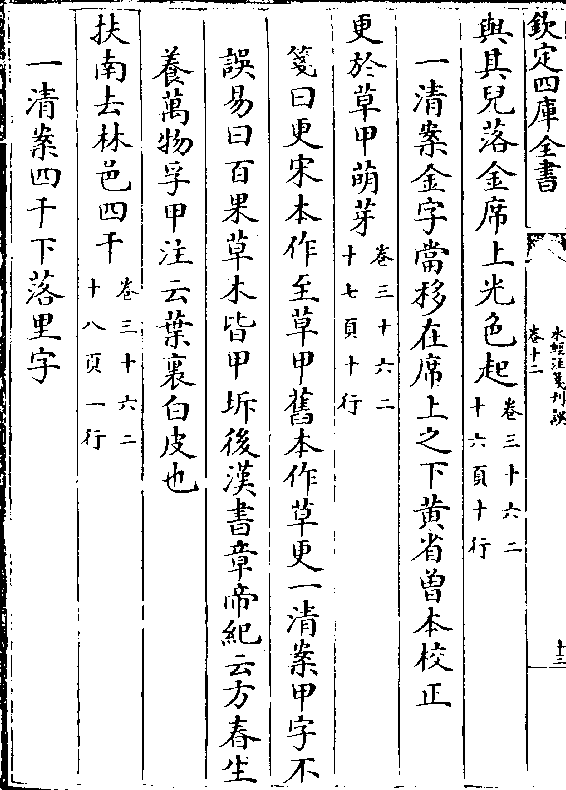 欽定四庫全書
水經注箋刊誤
卷十二
十三
與其兒落金席上光色起卷三十六二十六頁十行
一清案金字當移在席上之下黄省曽本校正
更於草甲萌芽卷三十六二十七頁十行
箋曰更宋本作至草甲舊本作草更一清案甲字不
誤易曰百果草木皆甲坼後漢書章帝紀云方春生
養萬物孚甲注云葉裏白皮也
扶南去林邑四千卷三十六二十八頁一行
一清案四千下落里字